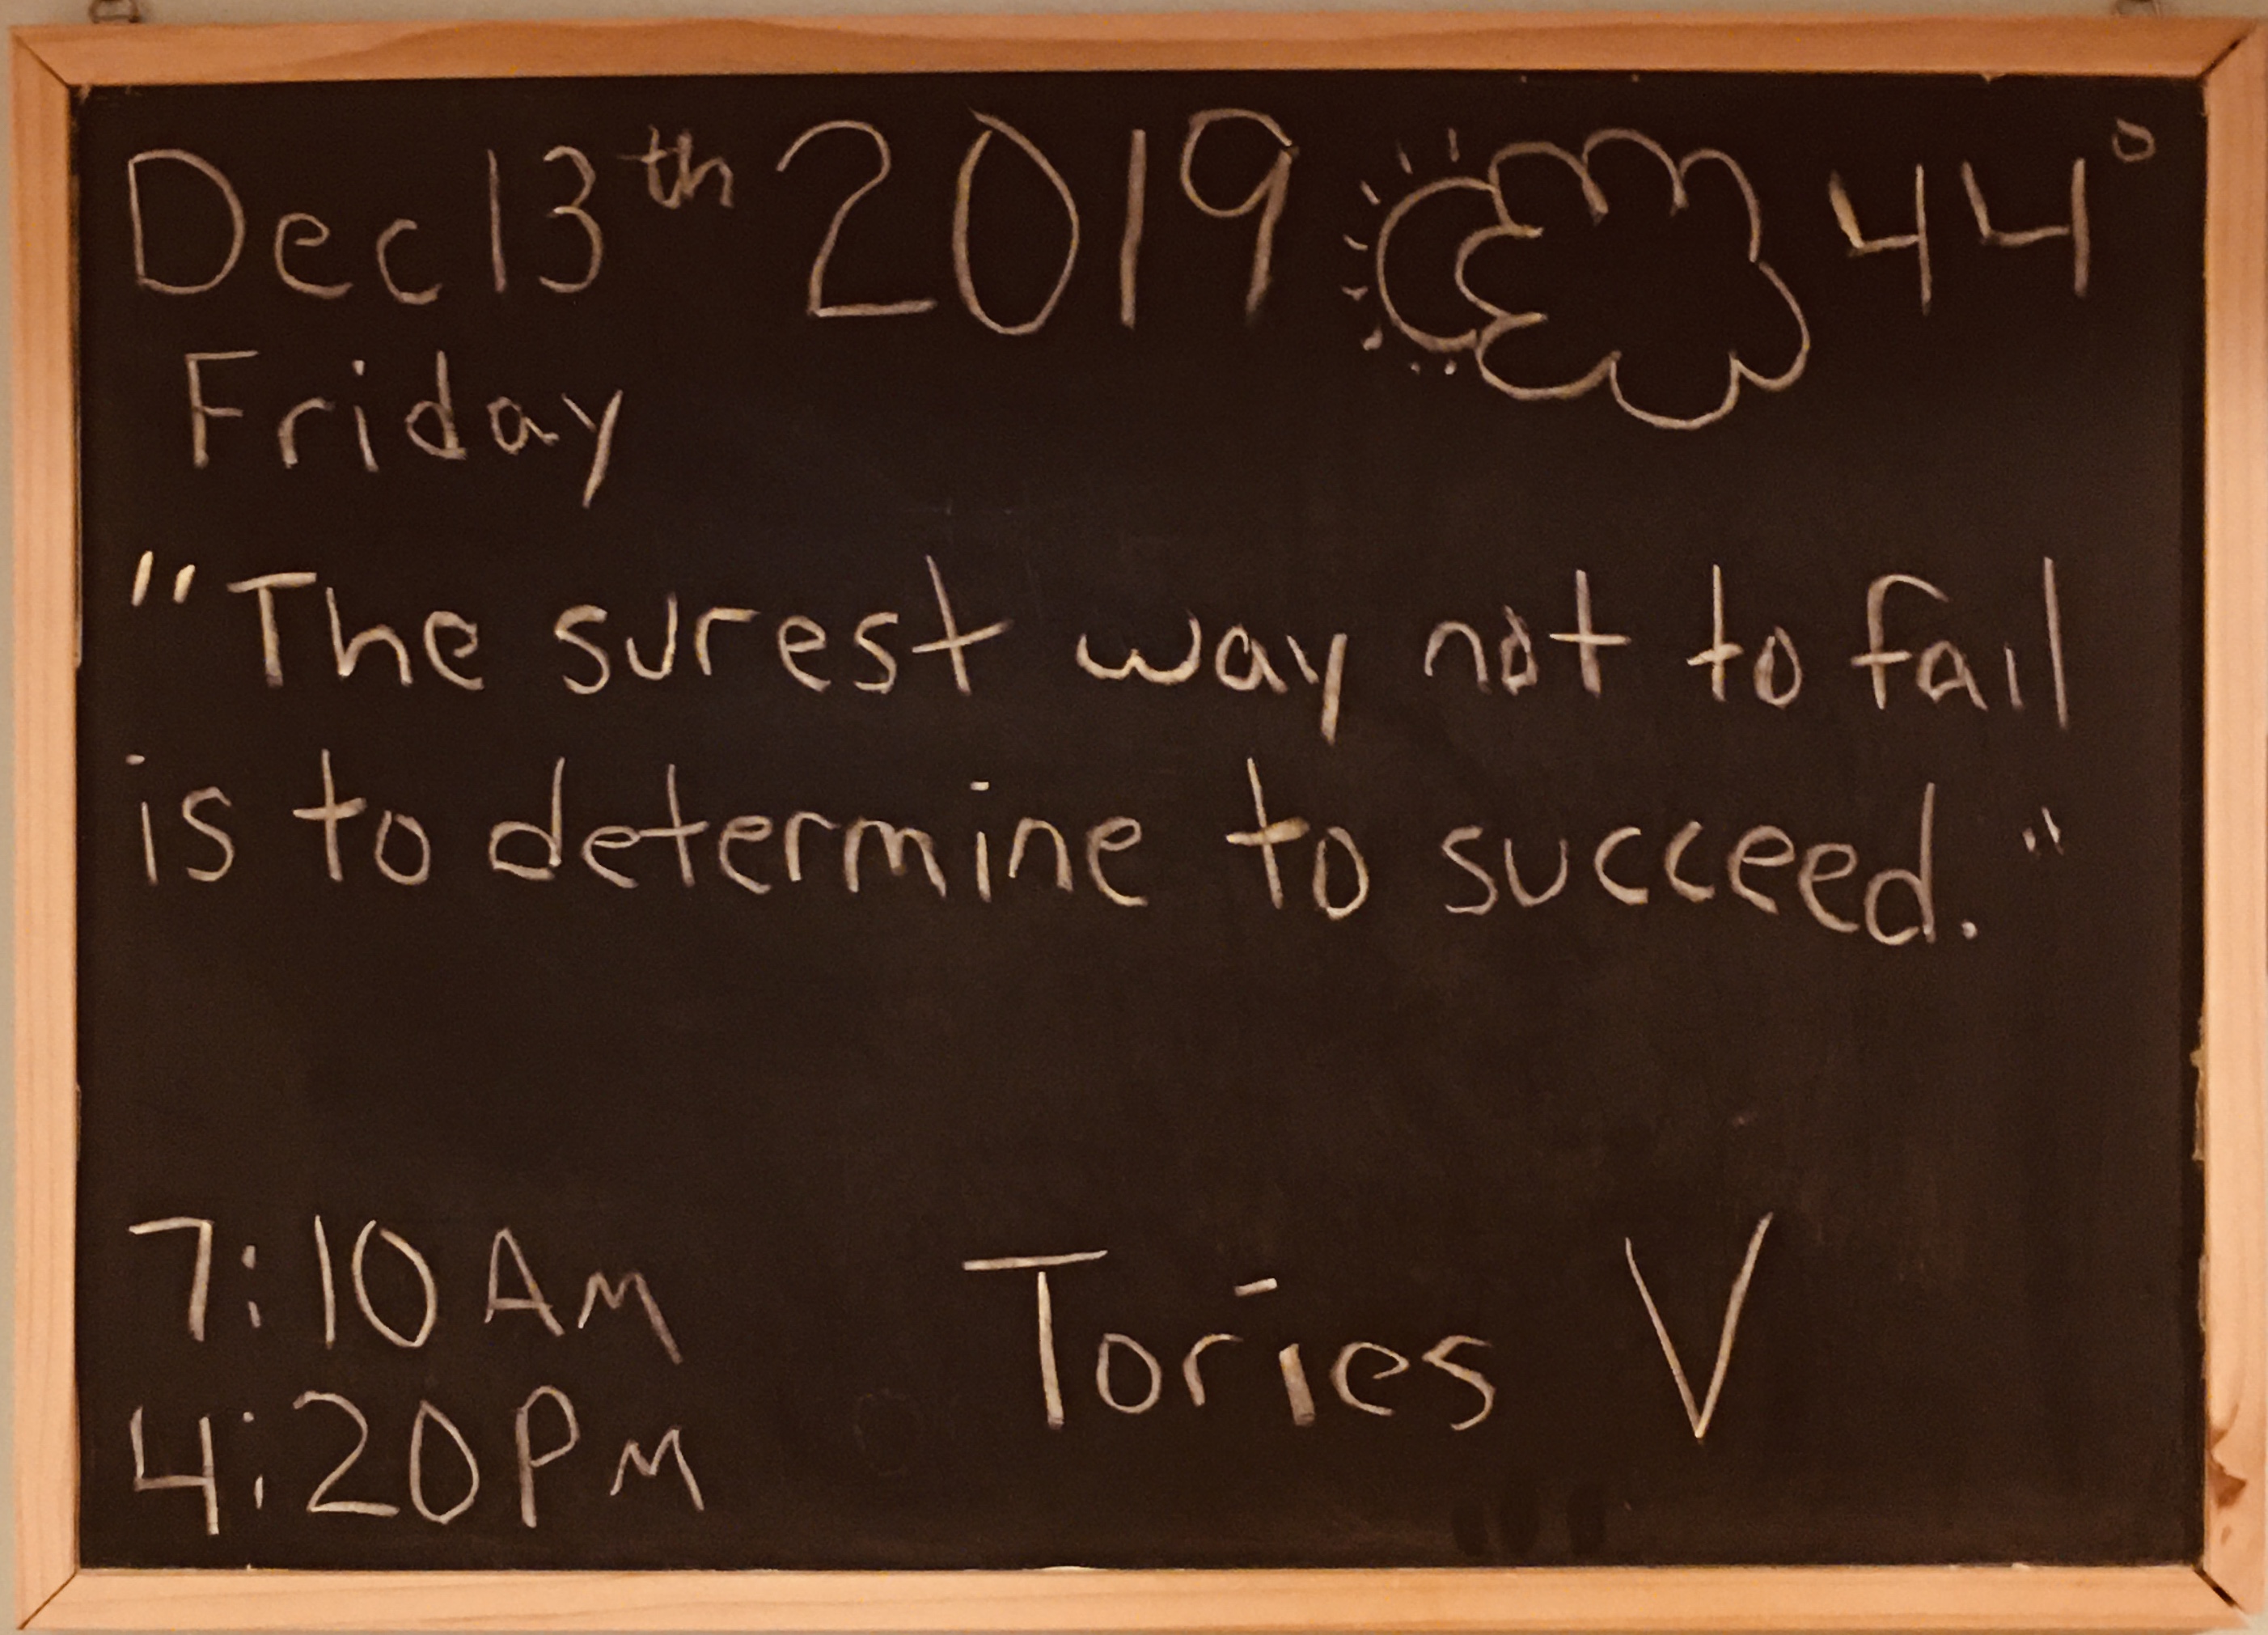 Dec 13th 2019 44°
Friday
"The surest way not to fail
is to determine to succeed."
7:10 AM
4:20 PM
Tories V